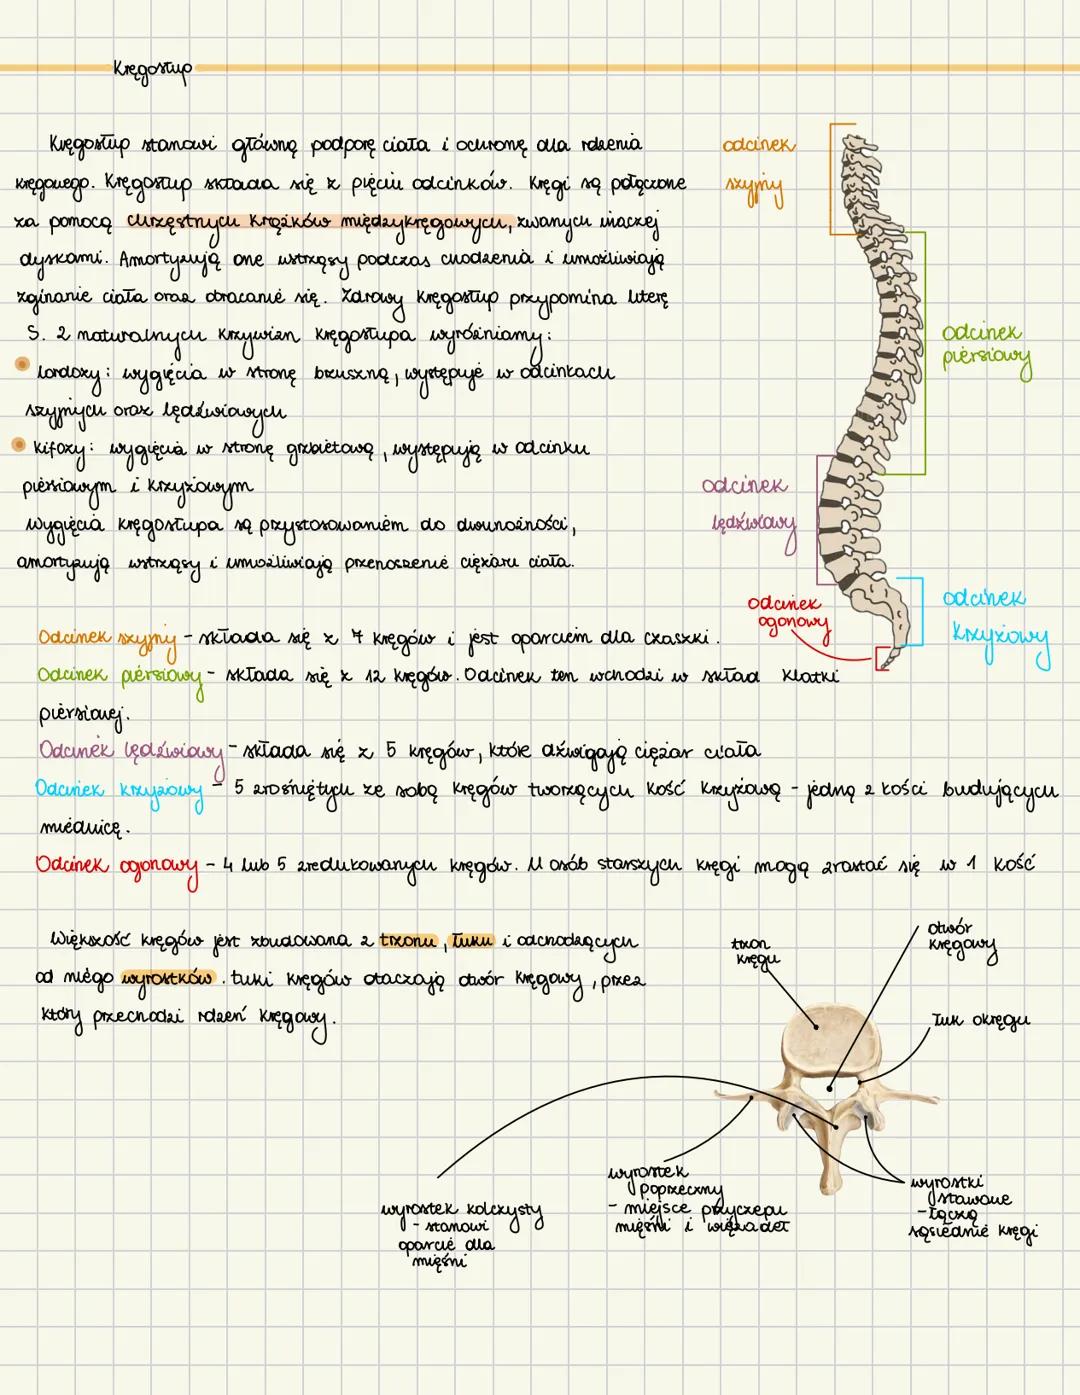 Kręgosłup
Kręgosłup stanowi główną podporę ciała i ochronę dla rdzenia
kręgowego. Kręgosłup składa się z pięciu odcinków. Kręgi są połączone
za pomocą chrzęstnych krążków międzykręgowych, zwanych inaczej
dyskami. Amortyzują one wstrząsy podczas chodzenia i umożliwiają
zginanie ciała oraz obracanie się. Zdrowy kręgosłup przypomina literę
S. Z naturalnych krzywizn kręgosłupa wyróżniamy:
lordozy: wygięcia w stronę brzuszną, występuje w odcinkach
szyjnych oraz lędźwiowych
kifozy: wygięcia w stronę grzbietową, występują w odcinku
piersiowym i krzyżowym
wygięcia kręgosłupa są przystosowaniem do dwunożności,
amortyzują wstrząsy i umożliwiają przenoszenie ciężaru ciała.
odcinek
szyjny
odcinek
piersiowy
odcinek
lędźwiowy
odcinek
ogonowy
odcinek
krzyżowy
Odcinek szyjny - składa się z 7 kręgów i jest oparciem dla czaszki.
Odcinek piersiowy - składa się z 12 kręgów. Odcinek ten wchodzi w skład klatki
piersiowej.
Odcinek lędźwiowy - składa się z 5 kręgów, które dźwigają ciężar ciała
Odcinek krzyżowy - 5 zrośniętych ze sobą kręgów tworzących kość krzyżową - jedną z kości budujących
miednicę.
Odcinek ogonowy - 4 lub 5 zredukowanych kręgów. U osób starszych kręgi mogą zrastać się w 1 kość
Większość kręgów jest zbudowana z trzonu, łuku i odchodzących
od niego wyrostków. Łuki kręgów otaczają otwór kręgowy, przez
który przechodzi rdzeń kręgowy.
trzon
kręgu
otwór
kręgowy
Łuk okręgu
wyrostek kolczysty
- stanowi
oparcie dla
mięśni
wyrostek
poprzeczny
- miejsce przyczepu
mięśni i więzadeł
wyrostki
stawowe
- łączą
sąsiednie kręgi